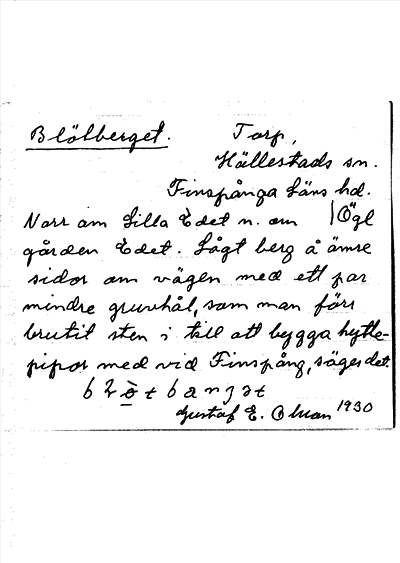 Blötberget. Torp,
Hällestads sn.
Finspånga Läns hd.
Norr om Lilla Edet n. om Ögl
gården Edet. Lågt berg å ömse
sidor om vägen med ett par
mindre gruvhål, som man förr
brutit sten i till att bygga hytte-
pipor med vid Finspång, säges det.
Gustaf E. Olsson 1930